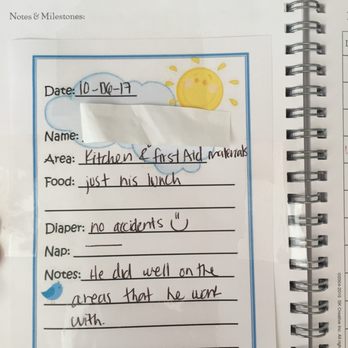 Notes & Milestones:
Date: 10-06-17
Name:
Area: Kitchen & first Aid materials
Food: just his lunch
Diaper: no accidents
Nap:
Notes: He did well on the
areas that he went
with.